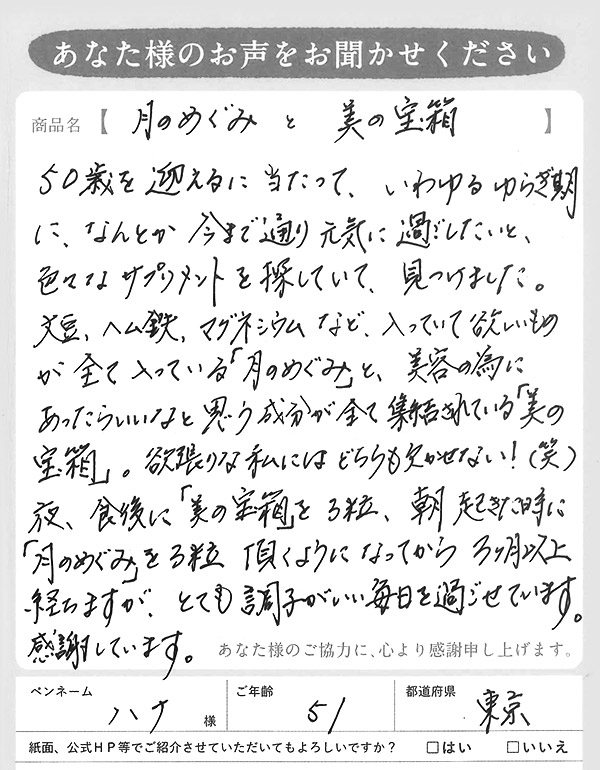 あなた様のお声をお聞かせください
商品名【 月のめぐみ と 美の宝箱 】
50歳を迎えるに当たって、いわゆるゆらぎ期
に、なんとか今まで通り元気に過ごしたいと、
色々なサプリメントを探していて、見つけました。
大豆、ヘム鉄、マグネシウムなど、入っていて欲しいもの
が全て入っている「月のめぐみ」と、美容の為に
あったらいいなと思う成分が全て集結されている「美の
宝箱」。欲張りな私にはどちらも欠かせない!(笑)
夜、食後に「美の宝箱」を3粒、朝起きた時に
「月のめぐみ」を3粒頂くようになってから3ヶ月以上
経ちますが、とても調子がいい毎日を過ごせています。
感謝しています。
あなた様のご協力に、心より感謝申し上げます。
ペンネーム ハナ 様 ご年齢 51 都道府県 東京
紙面、公式HP等でご紹介させていただいてもよろしいですか? □はい □いいえ